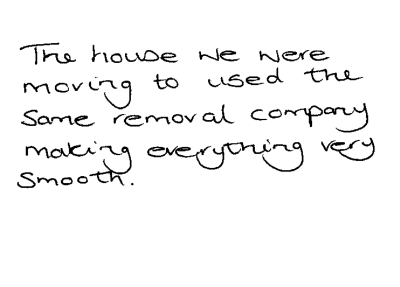 The house we were
moving to used the
same removal company
making everything very
smooth.